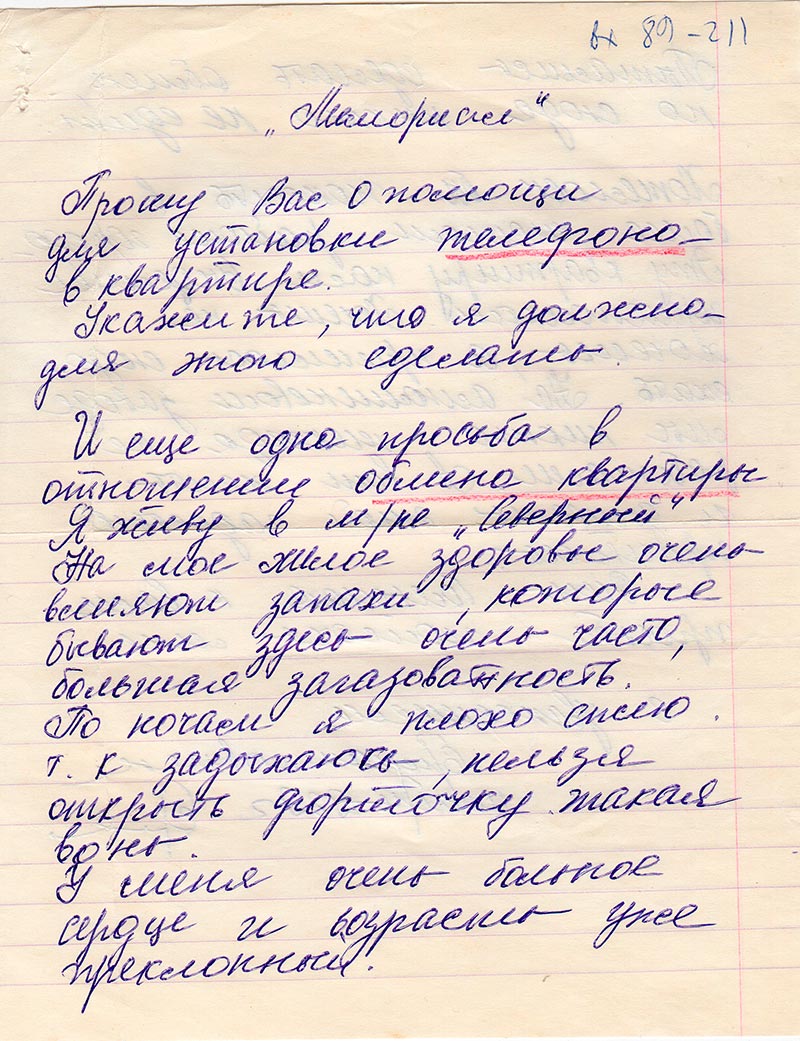 вх 89-211
„Мемориал"
Прошу Вас о помощи
для установки телефона
в квартире.
Укажите, что я должна
для этого сделать.
И еще одна просьба в
отношении обмена квартиры
Я живу в м/не „Северный"
На мое хилое здоровье очень
влияют запахи, которые
бывают здесь очень часто,
большая загазованность.
По ночам я плохо сплю.
т. к задыхаюсь, нельзя
открыть форточку такая
вонь.
У меня очень больное
сердце и возраст уже
преклонный.